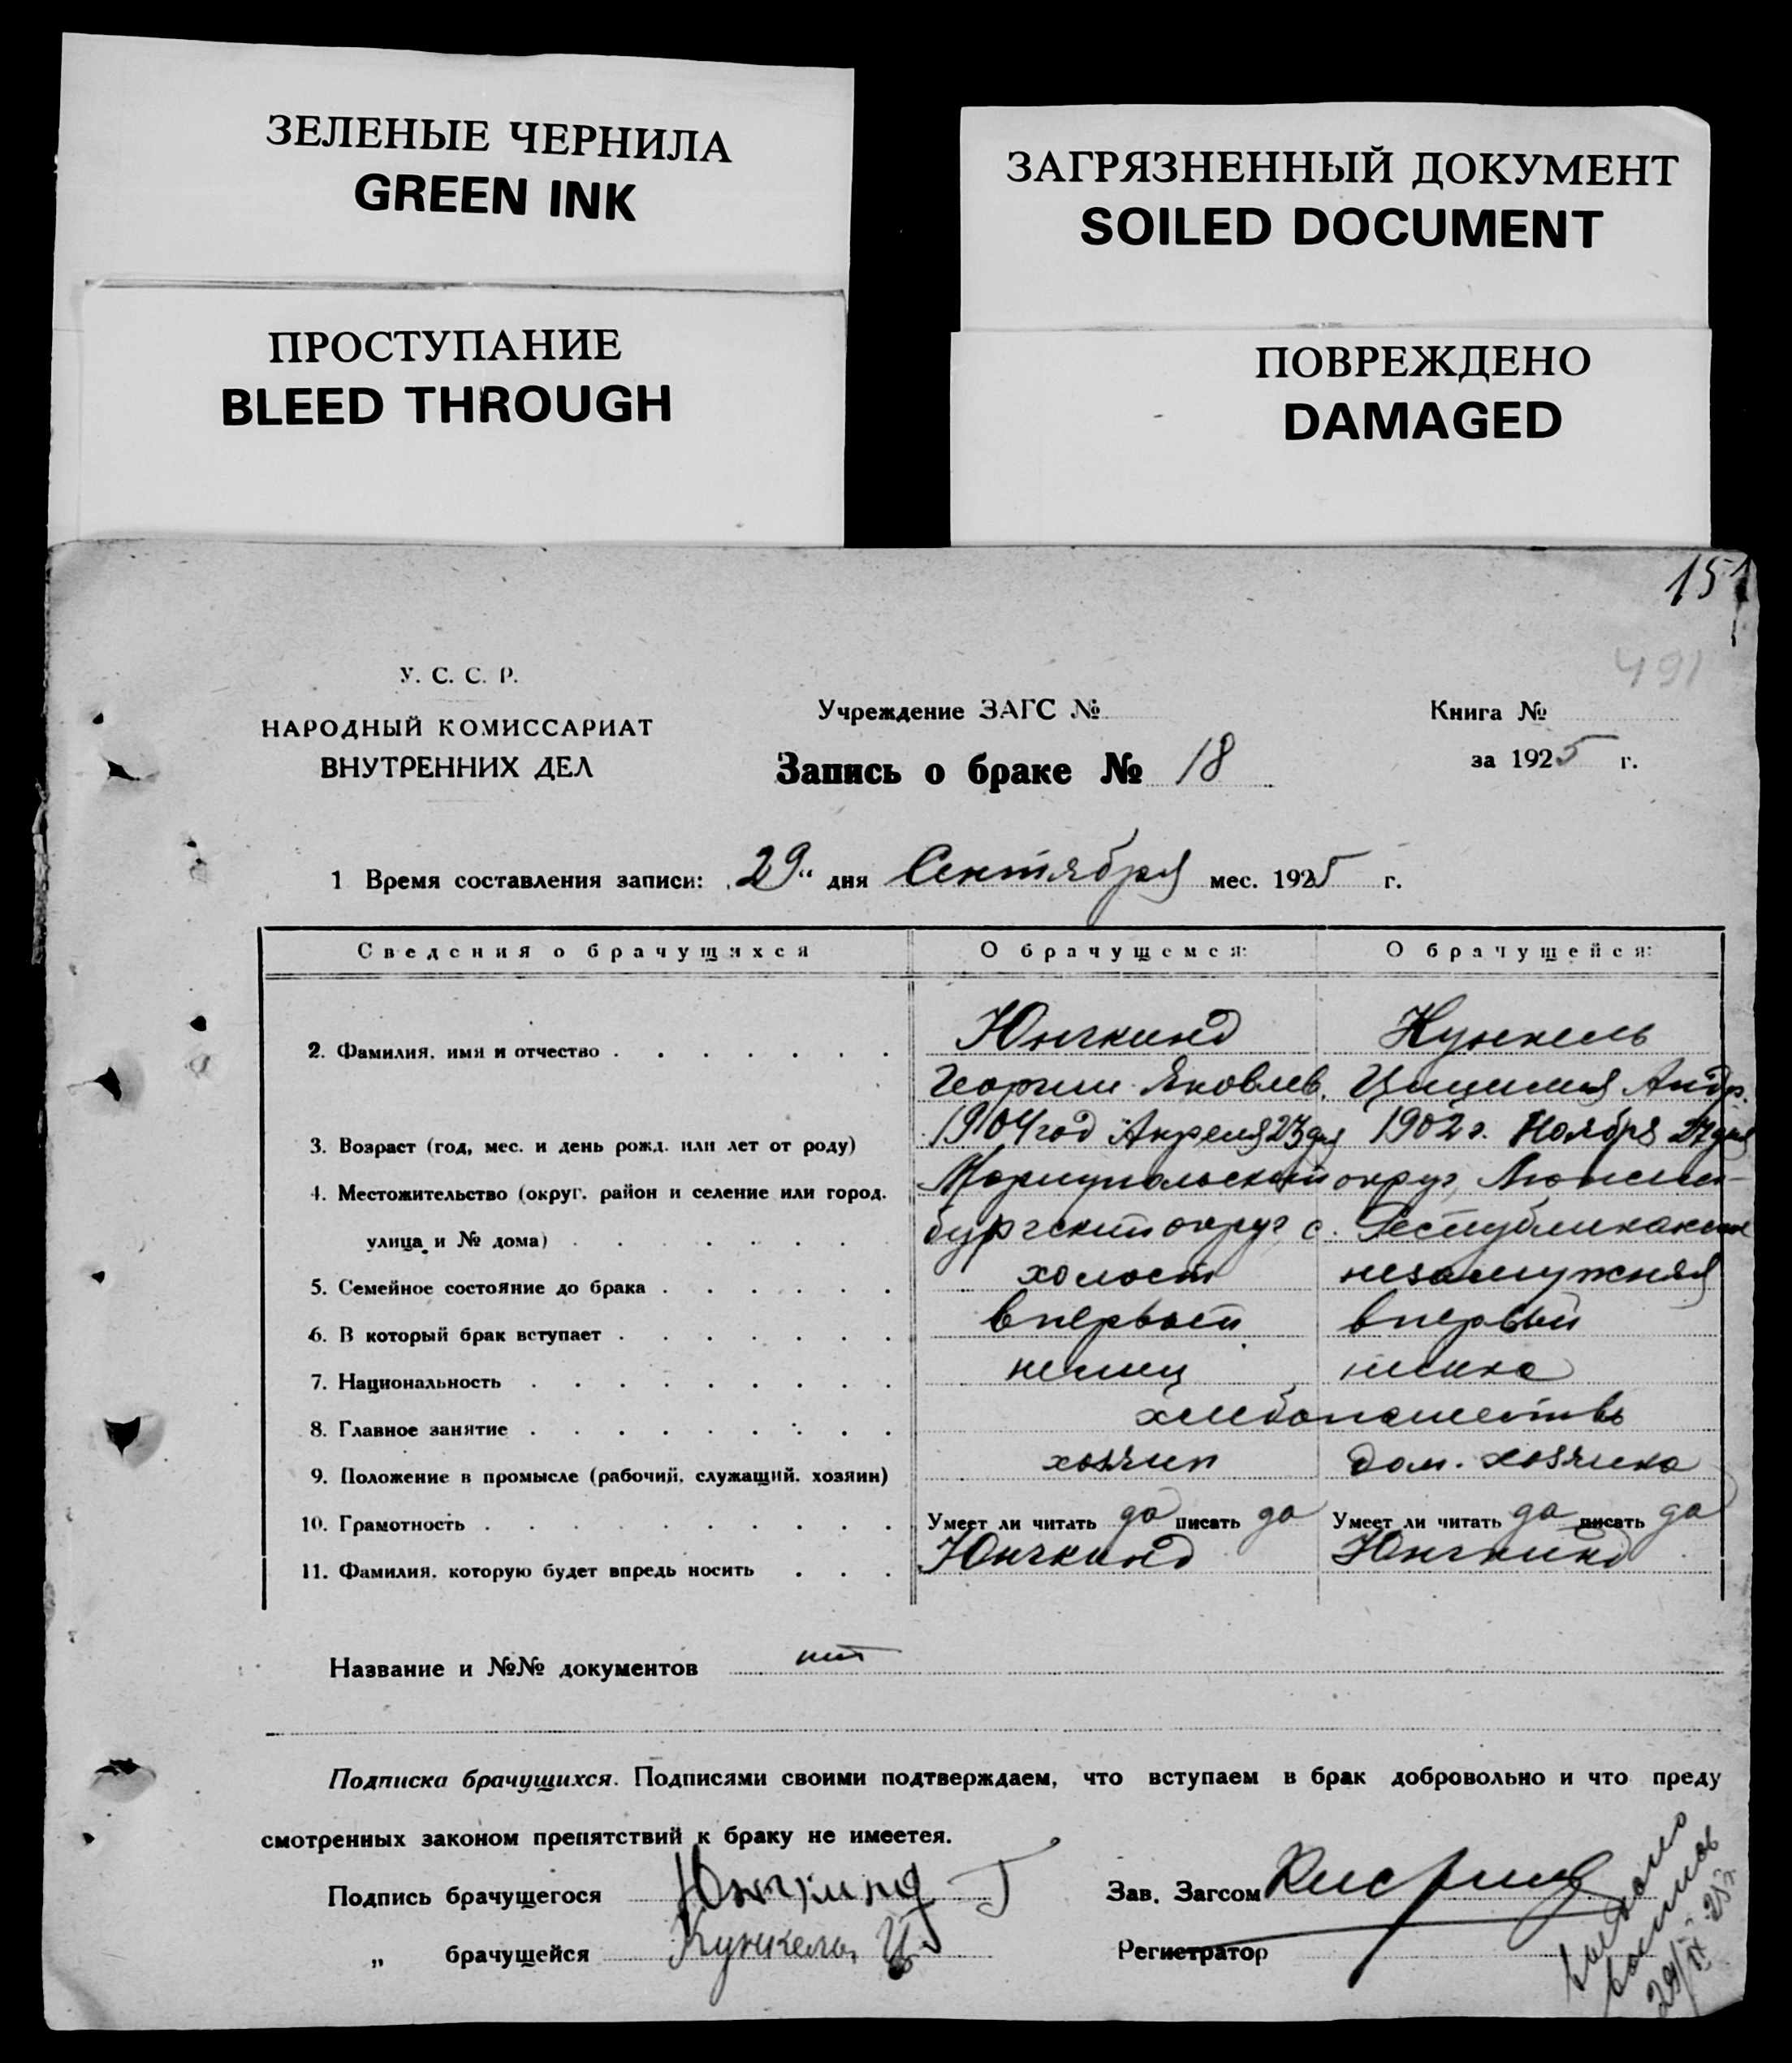 ЗЕЛЕНЫЕ ЧЕРНИЛА
GREEN INK
ПРОСТУПАНИЕ
BLEED THROUGH
ЗАГРЯЗНЕННЫЙ ДОКУМЕНТ
SOILED DOCUMENT
ПОВРЕЖДЕНО
DAMAGED
151
491
У. С. С. Р.
НАРОДНЫЙ КОМИССАРИАТ
ВНУТРЕННИХ ДЕЛ
Учреждение ЗАГС №
Запись о браке № 18
Книга №
за 1925 г.
1 Время составления записи: „29“ дня Сентября мес. 1925 г.
Сведения о брачущихся О брачущемся: О брачущейся:
2. Фамилия, имя и отчество Юнгкинд Кункель
Георгий Яковлев. Цицилия Андр.
3. Возраст (год, мес. и день рожд. или лет от роду) 1904 год Апреля 23 дня 1902 г. Ноября 27 дня
4. Местожительство (округ, район и селение или город, Мариупольский округ, Люксем-
улица и № дома) бургский округ с.
5. Семейное состояние до брака холост незамужняя
6. В который брак вступает впервый впервый
7. Национальность немец немка
8. Главное занятие хлебопашество
9. Положение в промысле (рабочий, служащий, хозяин) хозяин дом. хозяйка
10. Грамотность Умеет ли читать да писать да Умеет ли читать да писать да
11. Фамилия, которую будет впредь носить Юнгкинд Юнгкинд
Название и №№ документов нет
Подписка брачущихся. Подписями своими подтверждаем, что вступаем в брак добровольно и что преду
смотренных законом препятствий к браку не имеется.
Подпись брачущегося Юнгкинд Г
Зав. Загсом
„ брачущейся Кункель, Ц.
Регистратор
29/IX 25 г.